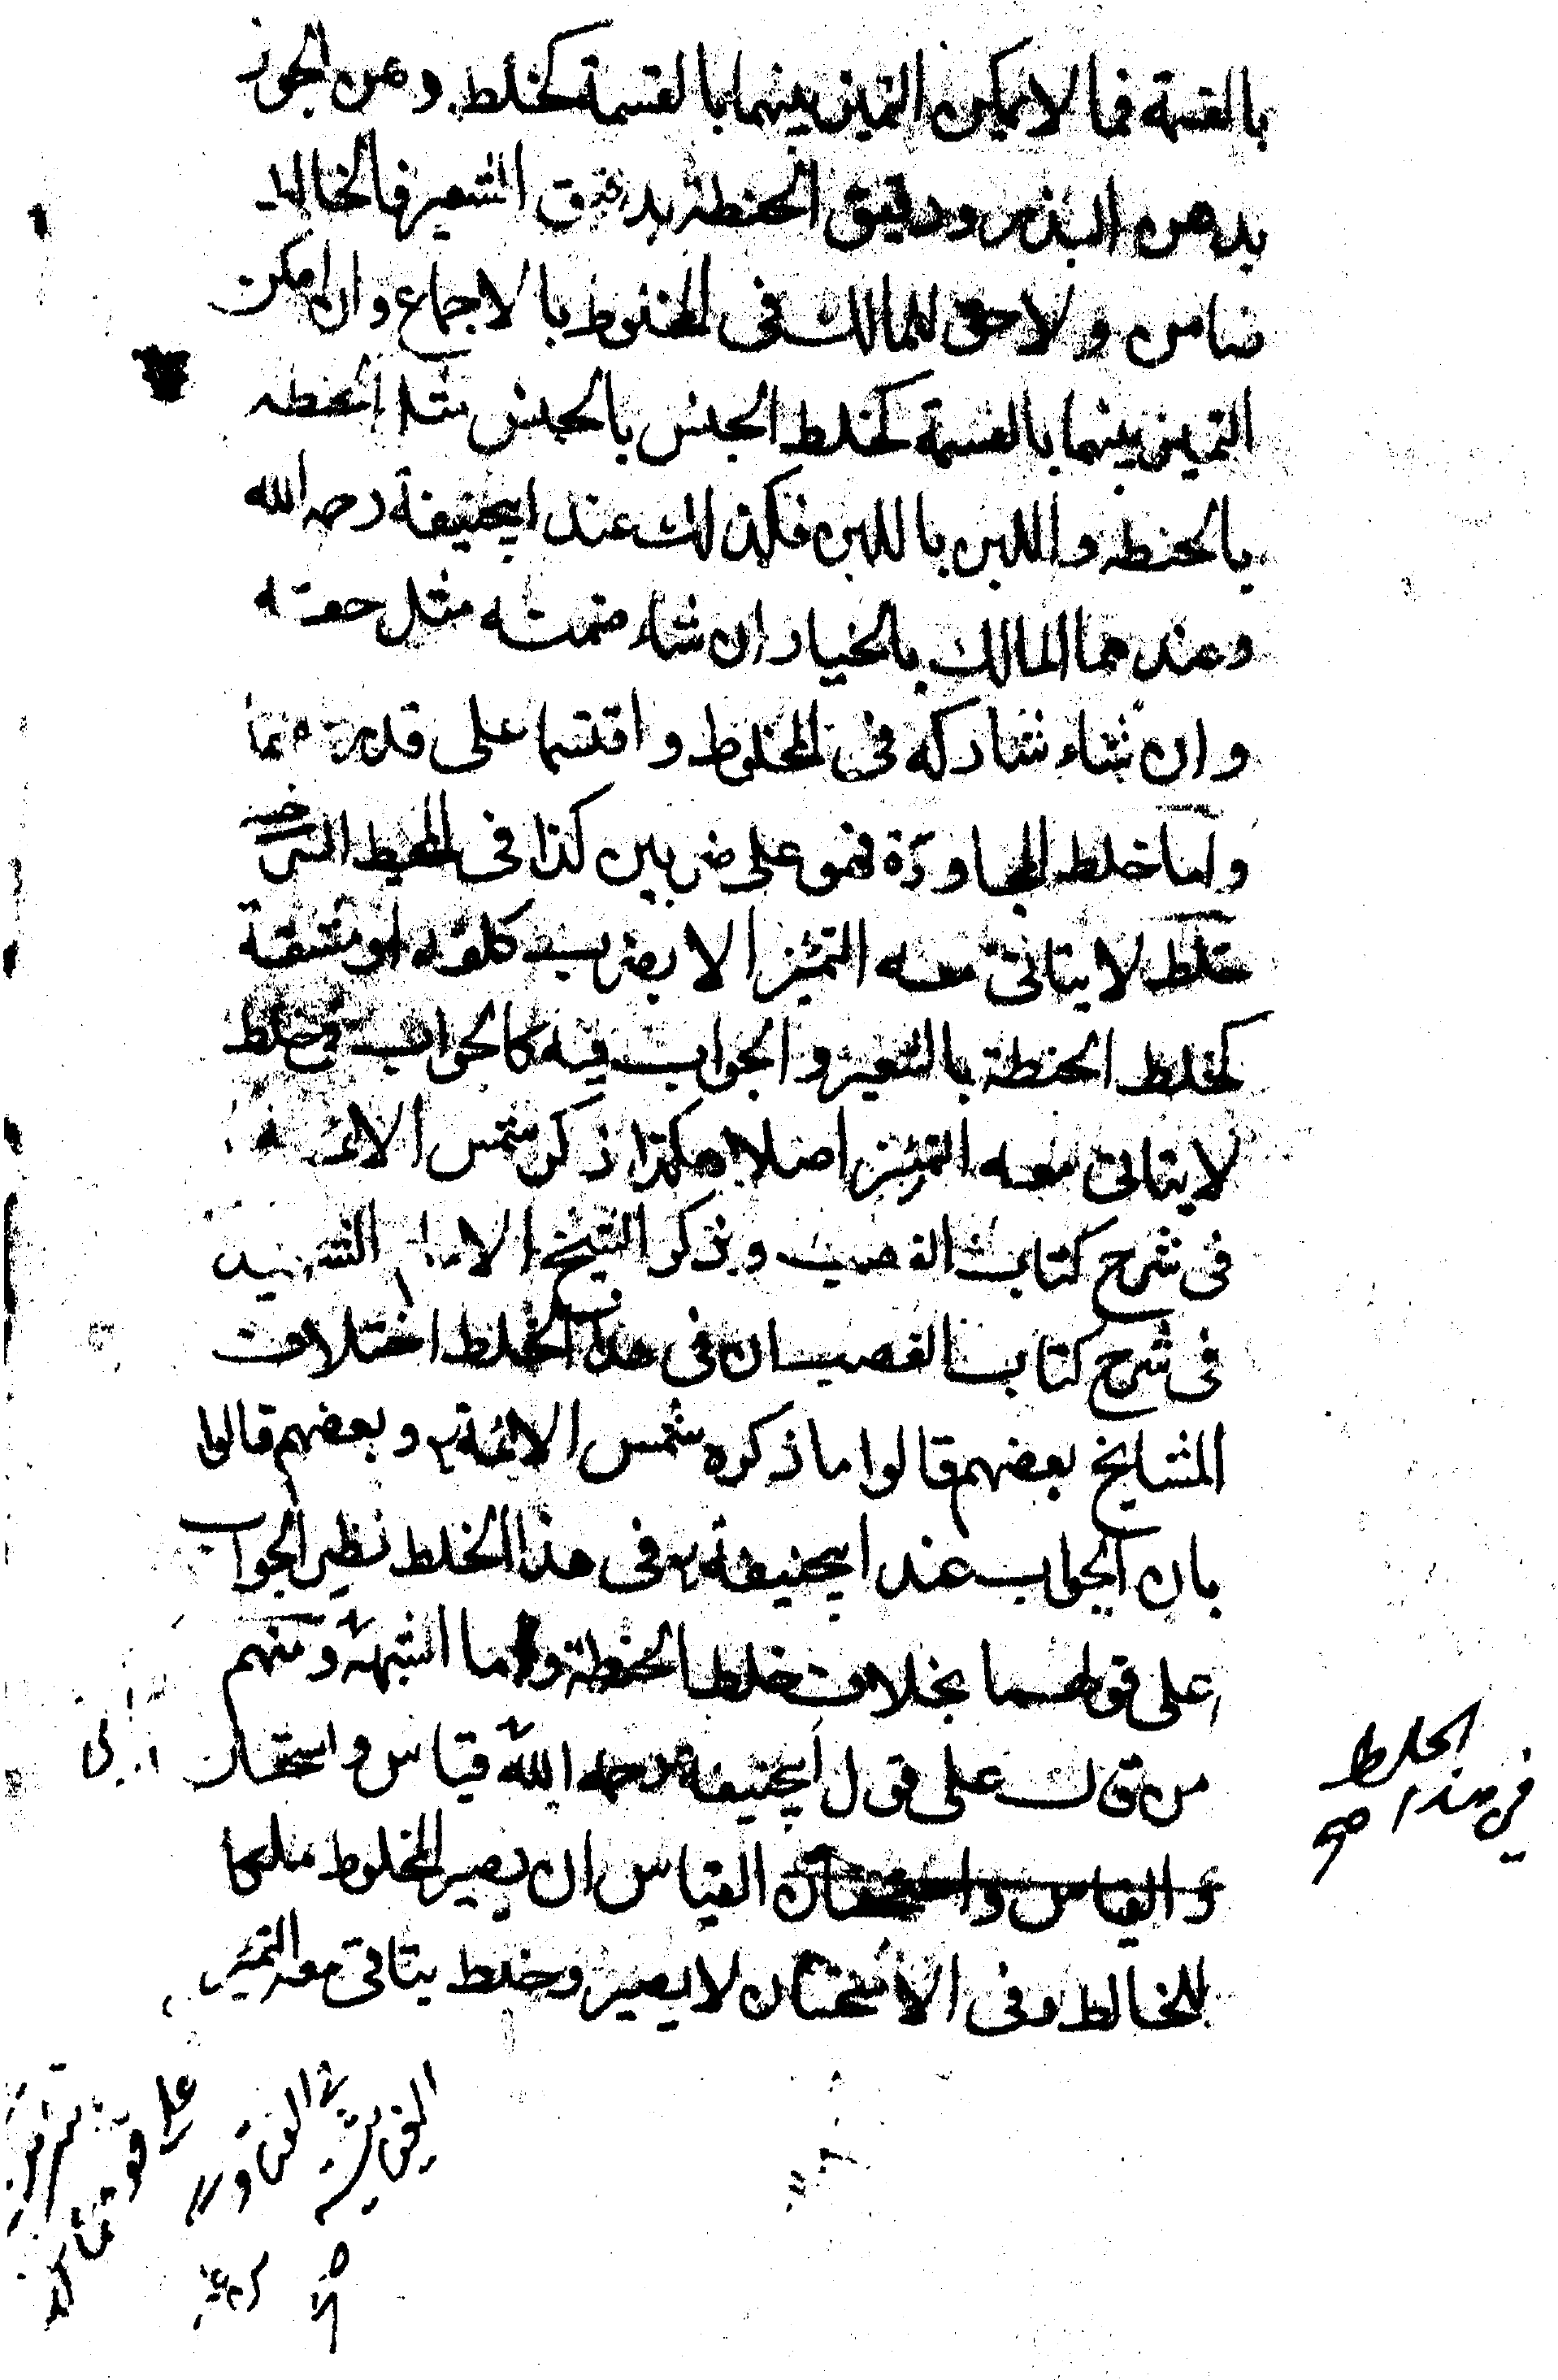 بالقسمة فما لا يمكن التميز بينهما بالقسمة كخلط دهن الجوز
بدهن البذر ودقيق الحنطة بدقيق الشعير فالخالط
ضامن ولا حق للمالك فى المخلوط بالاجماع وان امكن
التميز بينهما بالقسمة كخلط الجنس بالجنس مثل الحنطه
بالحنطه واللبن باللبن فكذلك عند ابيحنيفة رحمه الله
وعندهما المالك بالخيار ان شاء ضمنه مثل حقه
وان شاء شاركه فى المخلوط واقتسما على قدر حقهما
واما خلط المجاورة فهو على ضربين كذا فى المحيط السرخسى
خلط لا يتاتى معه التميز الا بضرب كلفه او مشقة
كخلط الحنطة بالشعير والجواب فيه كالجواب فى خلط
لا يتاتى معه التميز اصلا هكذا ذكر شمس الائمه
فى شرح كتاب الغصب وذكر الشيخ الامام الشهيد
فى شرح كتاب الغصب ان فى هذا الخلط اختلاف
المشايخ بعضهم قالوا ما ذكره شمس الائمة وبعضهم قالوا
بان الجواب عند ابيحنيفة فى هذا الخلط نظير الجواب
على قولهما بخلاف خلط الحنطة واما الشبهة ومنهم
من قال على قول ابيحنيفة رحمه الله قياس واستحسان
فى هذا الخلط صح
القياس ان يصير المخلوط ملكا
للخالط وفى الاستحسان لا يصير وخلط يتاتى معه التميز